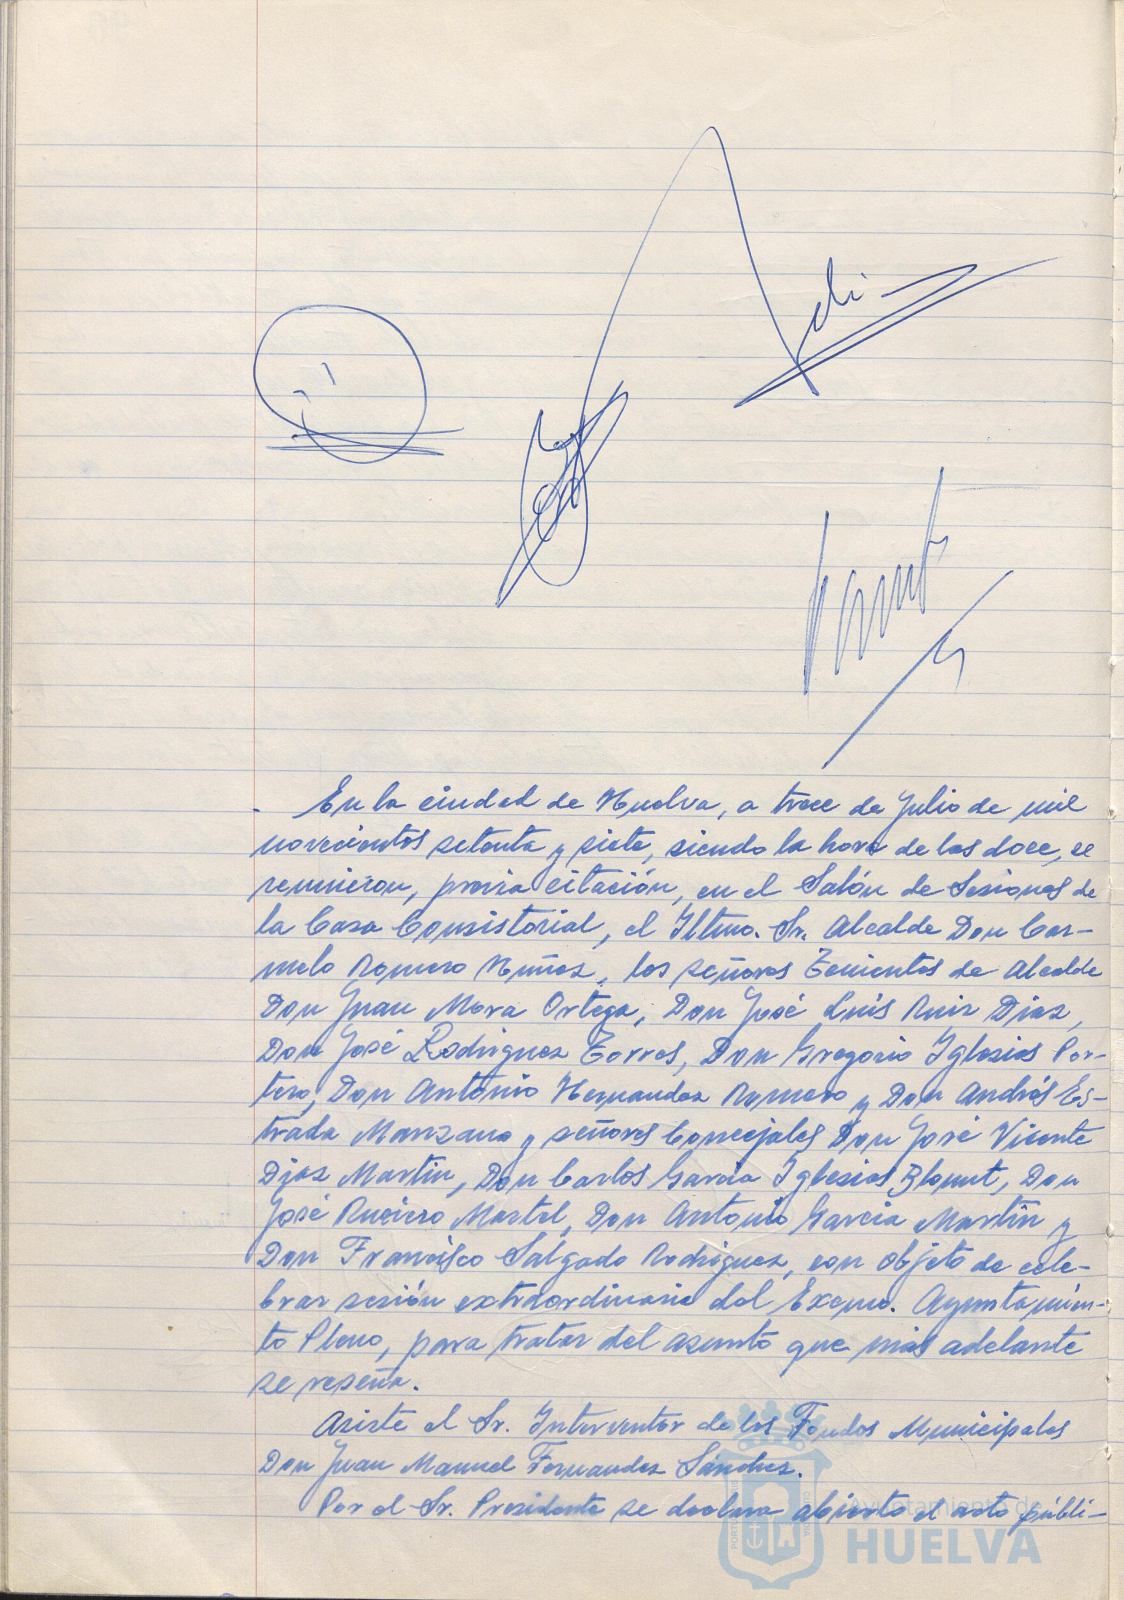 En la ciudad de Huelva, a trece de Julio de mil
novecientos setenta y siete, siendo la hora de las doce, se
reunieron, previa citación, en el Salón de Sesiones de
la Casa Consistorial, el Iltmo. Sr. Alcalde Don Car-
melo Romero Núñez, los señores Tenientes de Alcalde
Don Juan Mora Ortega, Don José Luis Ruiz Diaz,
Don José Rodriguez Torres, Don Gregorio Iglesias Por-
tero, Don Antonio Hernandez Romero y Don Andrés Es-
trada Manzano y señores Concejales Don José Vicente
Diaz Martin, Don Carlos Garcia Iglesias Blount, Don
José Martel, Don Antonio Garcia Martin y
Don Francisco Salgado Rodriguez, con objeto de cele-
brar sesión extraordinaria del Excmo. Ayuntamien-
to Pleno, para tratar del asunto que más adelante
se reseña.
Asiste el Sr. Interventor de los Fondos Municipales
Don Juan Manuel Fernandez Sánchez.
Por el Sr. Presidente se declara abierto el acto públi-
Ayuntamiento de
HUELVA